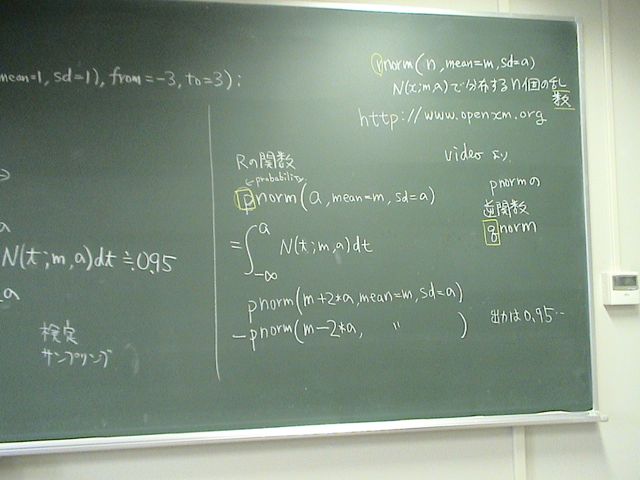 mean=1, sd=1), from=-3, to=3);
a
N(t;m,a)dt≒0.95
a
検定
サンプリング
rnorm(n, mean=m, sd=a)
N(x;m,a)で分布するn個の乱
数
http://www.openxm.org
video より
Rの関数
←probability
pnorm(a, mean=m, sd=a)
=∫_{-∞}^{a} N(t;m,a)dt
pnorm(m+2*a, mean=m, sd=a)
-pnorm(m-2*a, 〃 )
pnormの
逆関数
qnorm
出力は0.95…